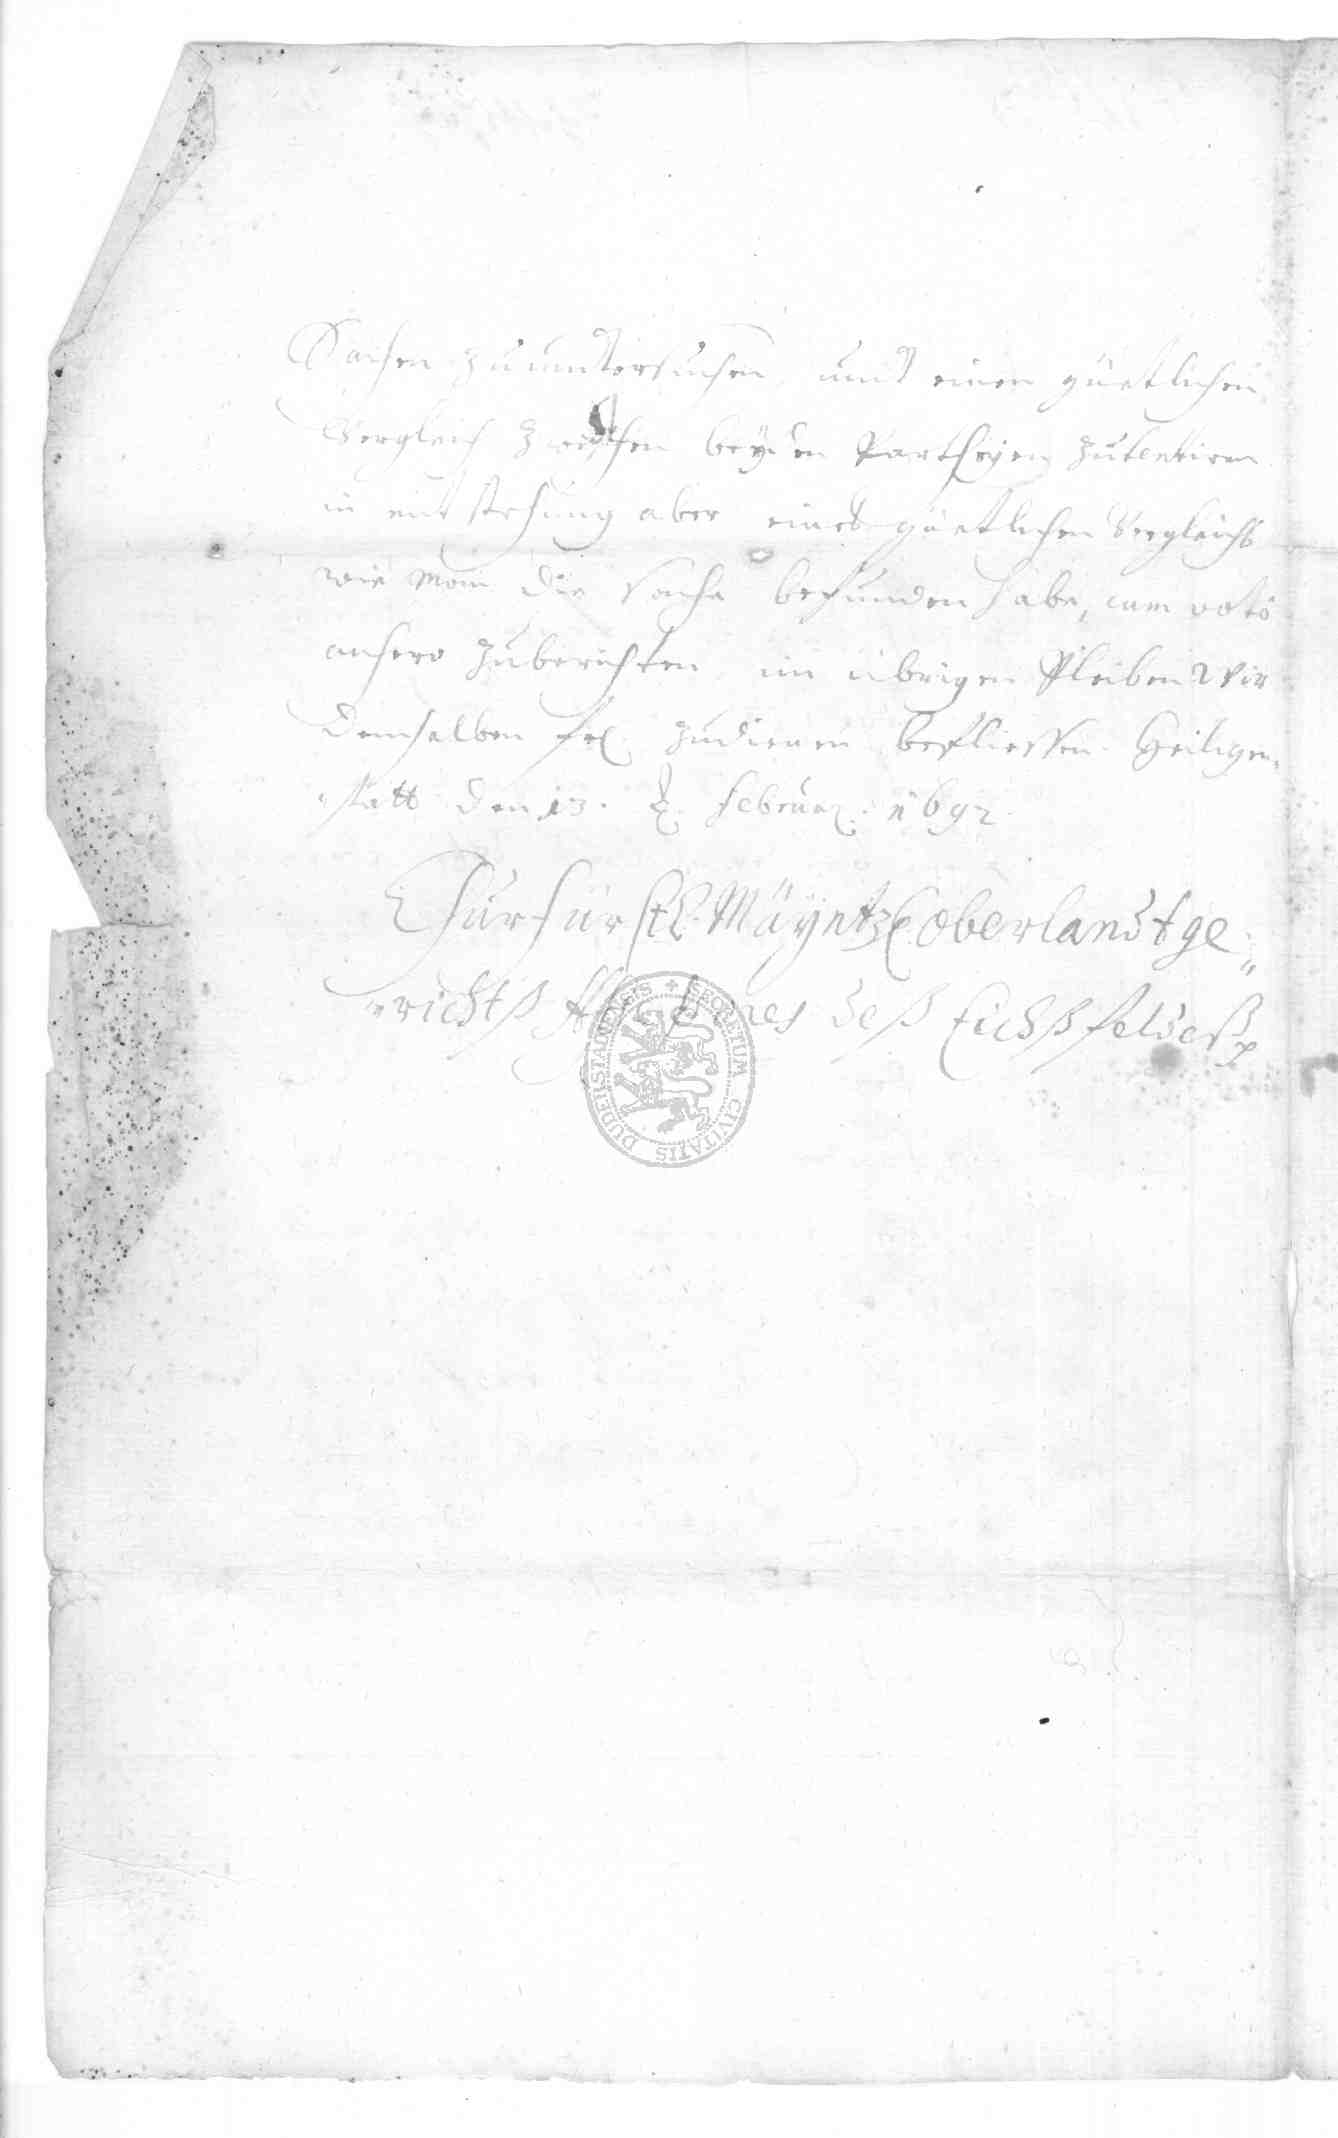 Sachen zu untersuchen, undt einen güetlichen
Vergleich zwischen beyden Partheyen zutentiren
in entstehung aber eines güetlichen Vergleichs
wie man die sache befunden habe, cum voto
anhero zuberichten, im übrigen Pleiben Wir
demselben zudienen beflissen. Heiligen-
statt den 13. Februar. 1692
Churfürstl. Mäyntzl. Oberlandtge-
richts Assessores deß Eichßfeldeß
SECRETUM CIVITATIS DUDERSTADIENSIS